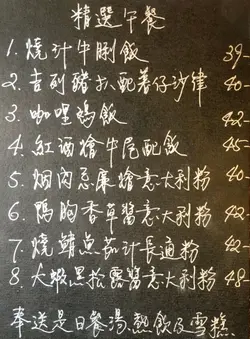 精選午餐
1. 燒汁牛脷飯 39-
2. 吉列豬扒配薯仔沙律 40-
3. 咖哩鷄飯 42-
4. 紅酒燴牛尾配飯 45-
5. 烟肉忌廉燴意大利粉 40-
6. 鴨胸香草醬意大利粉 42-
7. 燒鯖魚茄汁長通粉 42-
8. 大蝦黑松露醬意大利粉 48-
奉送是日餐湯,熱飲及雪糕.